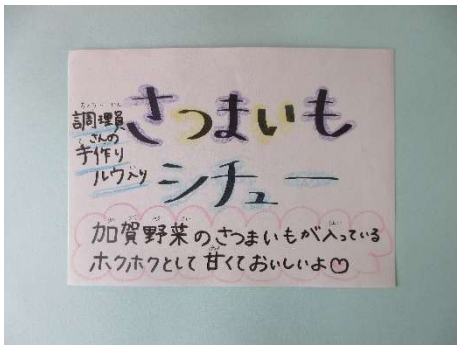 調理員
さんの
手作り
ルウ入り
さつまいも
シチュー
加賀野菜のさつまいもが入っている
ホクホクとして甘くておいしいよ♡